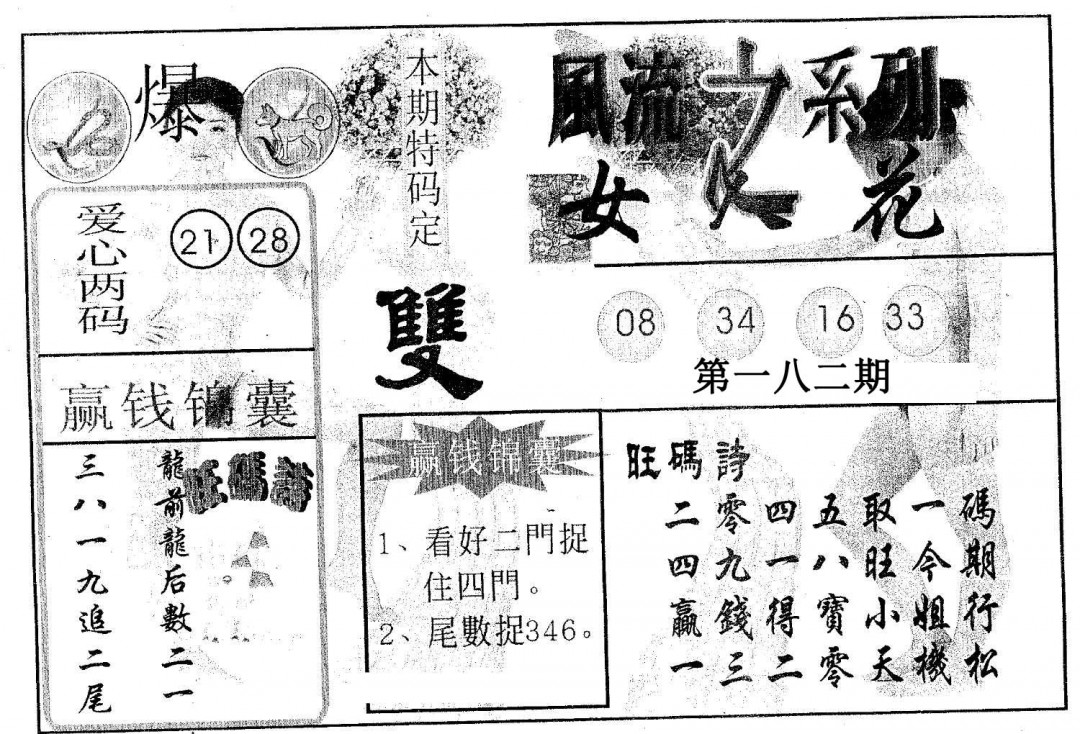 爆
本期特码定
雙
風流之系列
女人花
爱心两码
21 28
赢钱锦囊
龍前龍后數二一
三八一九追二尾
旺碼詩
08 34 16 33
第一八二期
赢钱锦囊
1、看好二門捉
住四門。
2、尾數捉346。
旺碼詩
二零四五取一碼
四九一八旺今期
贏錢得寶小姐行
一三二零天機松